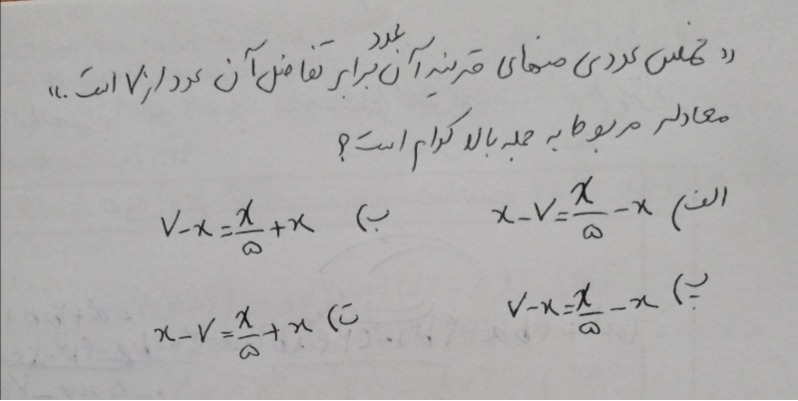 « خمس عددی منهای قرینه آن عدد برابر تفاضل آن عدد از ۷ است.»
معادله مربوط به جمله بالا کدام است؟
الف) x-۷=x/۵-x ب) ۷-x=x/۵+x
پ) ۷-x=x/۵-x ت) x-۷=x/۵+x